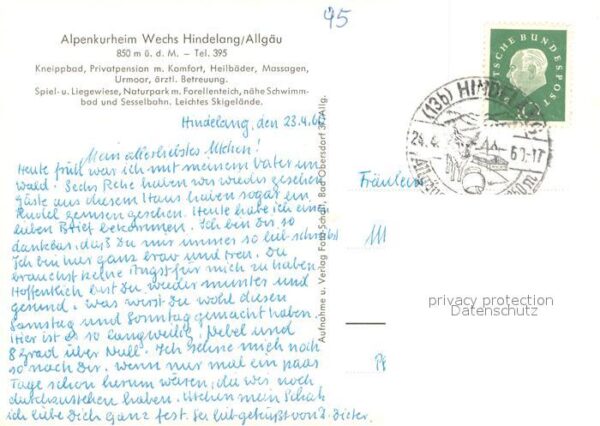 95
Alpenkurheim Wechs Hindelang/Allgäu
850 m ü. d. M. – Tel. 395
Kneippbad, Privatpension m. Komfort, Heilbäder, Massagen,
Urmoor, ärztl. Betreuung.
Spiel- u. Liegewiese, Naturpark m. Forellenteich, nähe Schwimm-
bad und Sesselbahn. Leichtes Skigelände.
Hindelang, den 23.4.60
Mein allerliebstes Utchen!
Heute früh war ich mit meinem Vater im
Wald. Sechs Rehe haben wir wieder gesehen
Gäste aus diesem Haus haben sogar ein
Rudel Gemsen gesehen. Heute habe ich einen
lieben Brief bekommen. Ich bin Dir so
dankbar, daß Du mir immer so lieb schreibst
Ich bin hier ganz brav und treu. Du
brauchst keine Angst für mich zu haben.
Hoffentlich bist Du wieder munter und
gesund. Was wirst Du wohl diesen
Samstag und Sonntag gemacht haben.
Hier ist es so langweilig. Nebel und
8 Grad über Null. Ich sehne mich noch
so nach Dir. Wenn nur mal ein paar
Tage schon herum wären, da wir noch
durchzustehen haben. Utchen mein Schatz
ich liebe Dich ganz fest. Sei lieb gegrüßt von D. Dieter.
Aufnahme u. Verlag Foto-Schall, Bad Oberdorf 37/Allg.
DEUTSCHE BUNDESPOST
(13b) HINDELANG
24.4.60-17
Fräulein
privacy protection
Datenschutz